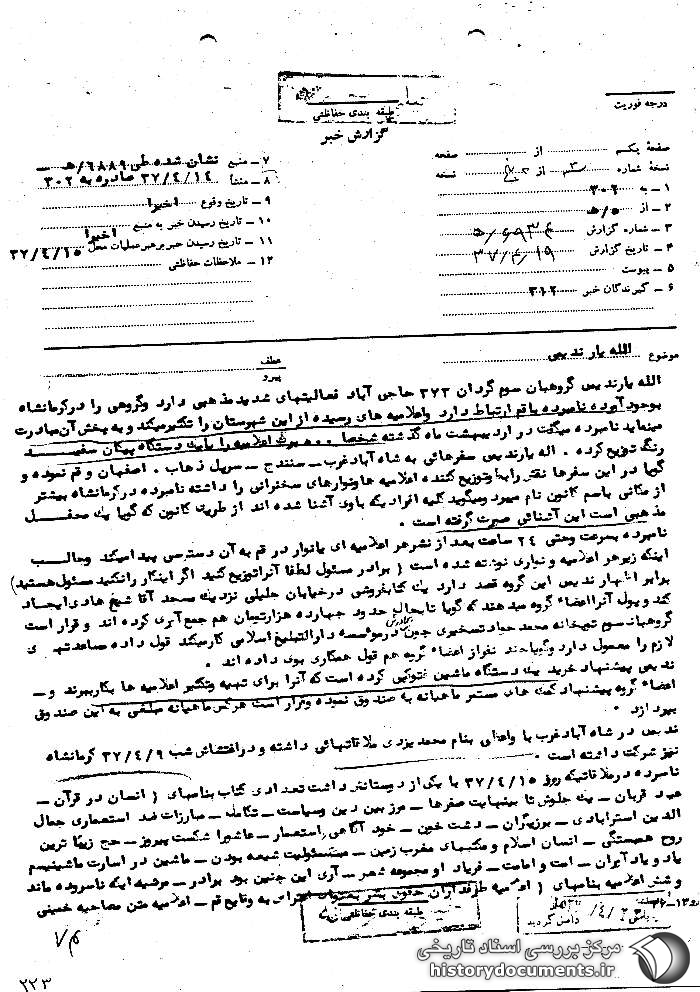 طبقه بندی حفاظتی
گزارش خبر
درجه فوریت
صفحهٔ یکم از صفحه
نسخهٔ شماره ۳ از نسخه
۱ – به ۳۰۲
۲ – از ۵/هـ
۳ – شماره گزارش
۴ – تاریخ گزارش ۳۷/۴/۱۹
۵ – پیوست
۶ – گیرندگان خبر ۳۱۲
۷ – منبع نشان شده طی ۶۸۸۹/هـ
۸ – منشأ ۳۷/۴/۱۴ صادره به ۳۰۲
۹ – تاریخ وقوع اخیرا
۱۰ – تاریخ رسیدن خبر به منبع اخیرا
۱۱ – تاریخ رسیدن خبر برهبر عملیات محل ۳۷/۴/۱۵
۱۲ – ملاحظات حفاظتی
موضوع الله یار ندیمی
عطف
پیرو
الله یارندیمی گروهبان سوم گردان ۲۷۳ حاجی آباد فعالیتهای شدید مذهبی دارد وگروهی را درکرمانشاه
بوجود آورده نامبرده با قم ارتباط دارد واعلامیه های رسیده از این شهرستان را تکثیر میکند و به پخش آن مبادرت
مینماید نامبرده میگفت در اردیبهشت ماه گذشته شخصا اعلامیه را با یک دستگاه پیکان سفید
رنگ توزیع کرده . اله یارندیمی سفرهائی به شاه آباد غرب – سنندج – سرپل ذهاب . اصفهان و قم نموده و
گویا در این سفرها نقش رابط و توزیع کننده اعلامیه ها ونوارهای سخنرانی را داشته نامبرده درکرمانشاه بیشتر
از مکانی باسم کانون نام میبرد ومیگوید کلیه افرادیکه باوی آشنا شده اند از طریق کانون که گویا یک محفل
مذهبی است این آشنائی صورت گرفته است .
نامبرده بسرعت وحتی ۲۴ ساعت بعد از نشر هر اعلامیه ای یانوار در قم به آن دسترسی پیدا میکند وجالب
اینکه زیر هر اعلامیه و نواری نوشته شده است ( برادر مسئول لطفا آنرا توزیع کنید اگر اینکار را نکنید مسئول هستید)
برابر اظهار ندیمی این گروه قصد دارد یک کتابفروشی درخیابان جلیلی نزدیک مسجد آقا شیخ هادی ایجاد
کند وپول آنرا اعضاء گروه میدهند که گویا تابحال حدود چهارده هزارتومان هم جمع آوری کرده اند و قرار است
گروهبان سوم توپخانه محمد جواد تسخیری چون برادرش درموسسه دارالتبلیغ اسلامی کار میکند قول داده مساعدتهای
لازم را معمول دارد وگویا چند نفر از اعضاء گروه هم قول همکاری بوی داده اند .
ندیمی پیشنهاد خرید یک دستگاه ماشین فتوکپی کرده است که آنرا برای تهیه وتکثیر اعلامیه ها بکار ببرند و –
اعضاء گروه پیشنهاد کمک های مستمر ماهیانه به صندوق نموده وقرار است هرکس ماهیانه مبلغی به این صندوق
بپردازد .
ندیمی در شاه آباد غرب با واعظی بنام محمد یزدی ملاقاتهائی داشته و در اغتشاش شب ۳۷/۴/۹ کرمانشاه
نیز شرکت داشته است .
نامبرده درملاقاتیکه روز ۳۷/۴/۱۵ با یکی از دوستانش داشت تعدادی کتاب بنامهای ( انسان در قرآن –
عید قربان – یک جلوش تا بینهایت صفرها – مرز بین دین وسیاست – تکامل – مبارزات ضد استعماری جمال
الدین استرابادی – برزیگران – دشت خون – خود آگاهی استعمار – عاشورا شکست پیروز – حج زیبا ترین
روح همبستگی – انسان اسلام و مکتبهای مغرب زمین – مسئولیت شیعه بودن – ماشین در اسارت ماشینیسم
یاد و یاد آوران – امت و امامت – فریاد او مجموعه شهر – آری این چنین بود برادر – مرثیه ایکه ناسروده ماند
و شش اعلامیه بنامهای ( اعلامیه طرفداران حقوق بشر بعنوان اعتراض به وقایع قم – اعلامیه متن مصاحبه خمینی
طبقه بندی حفاظتی
۲۲۳
مرکز بررسی اسناد تاریخی
historydocuments.ir